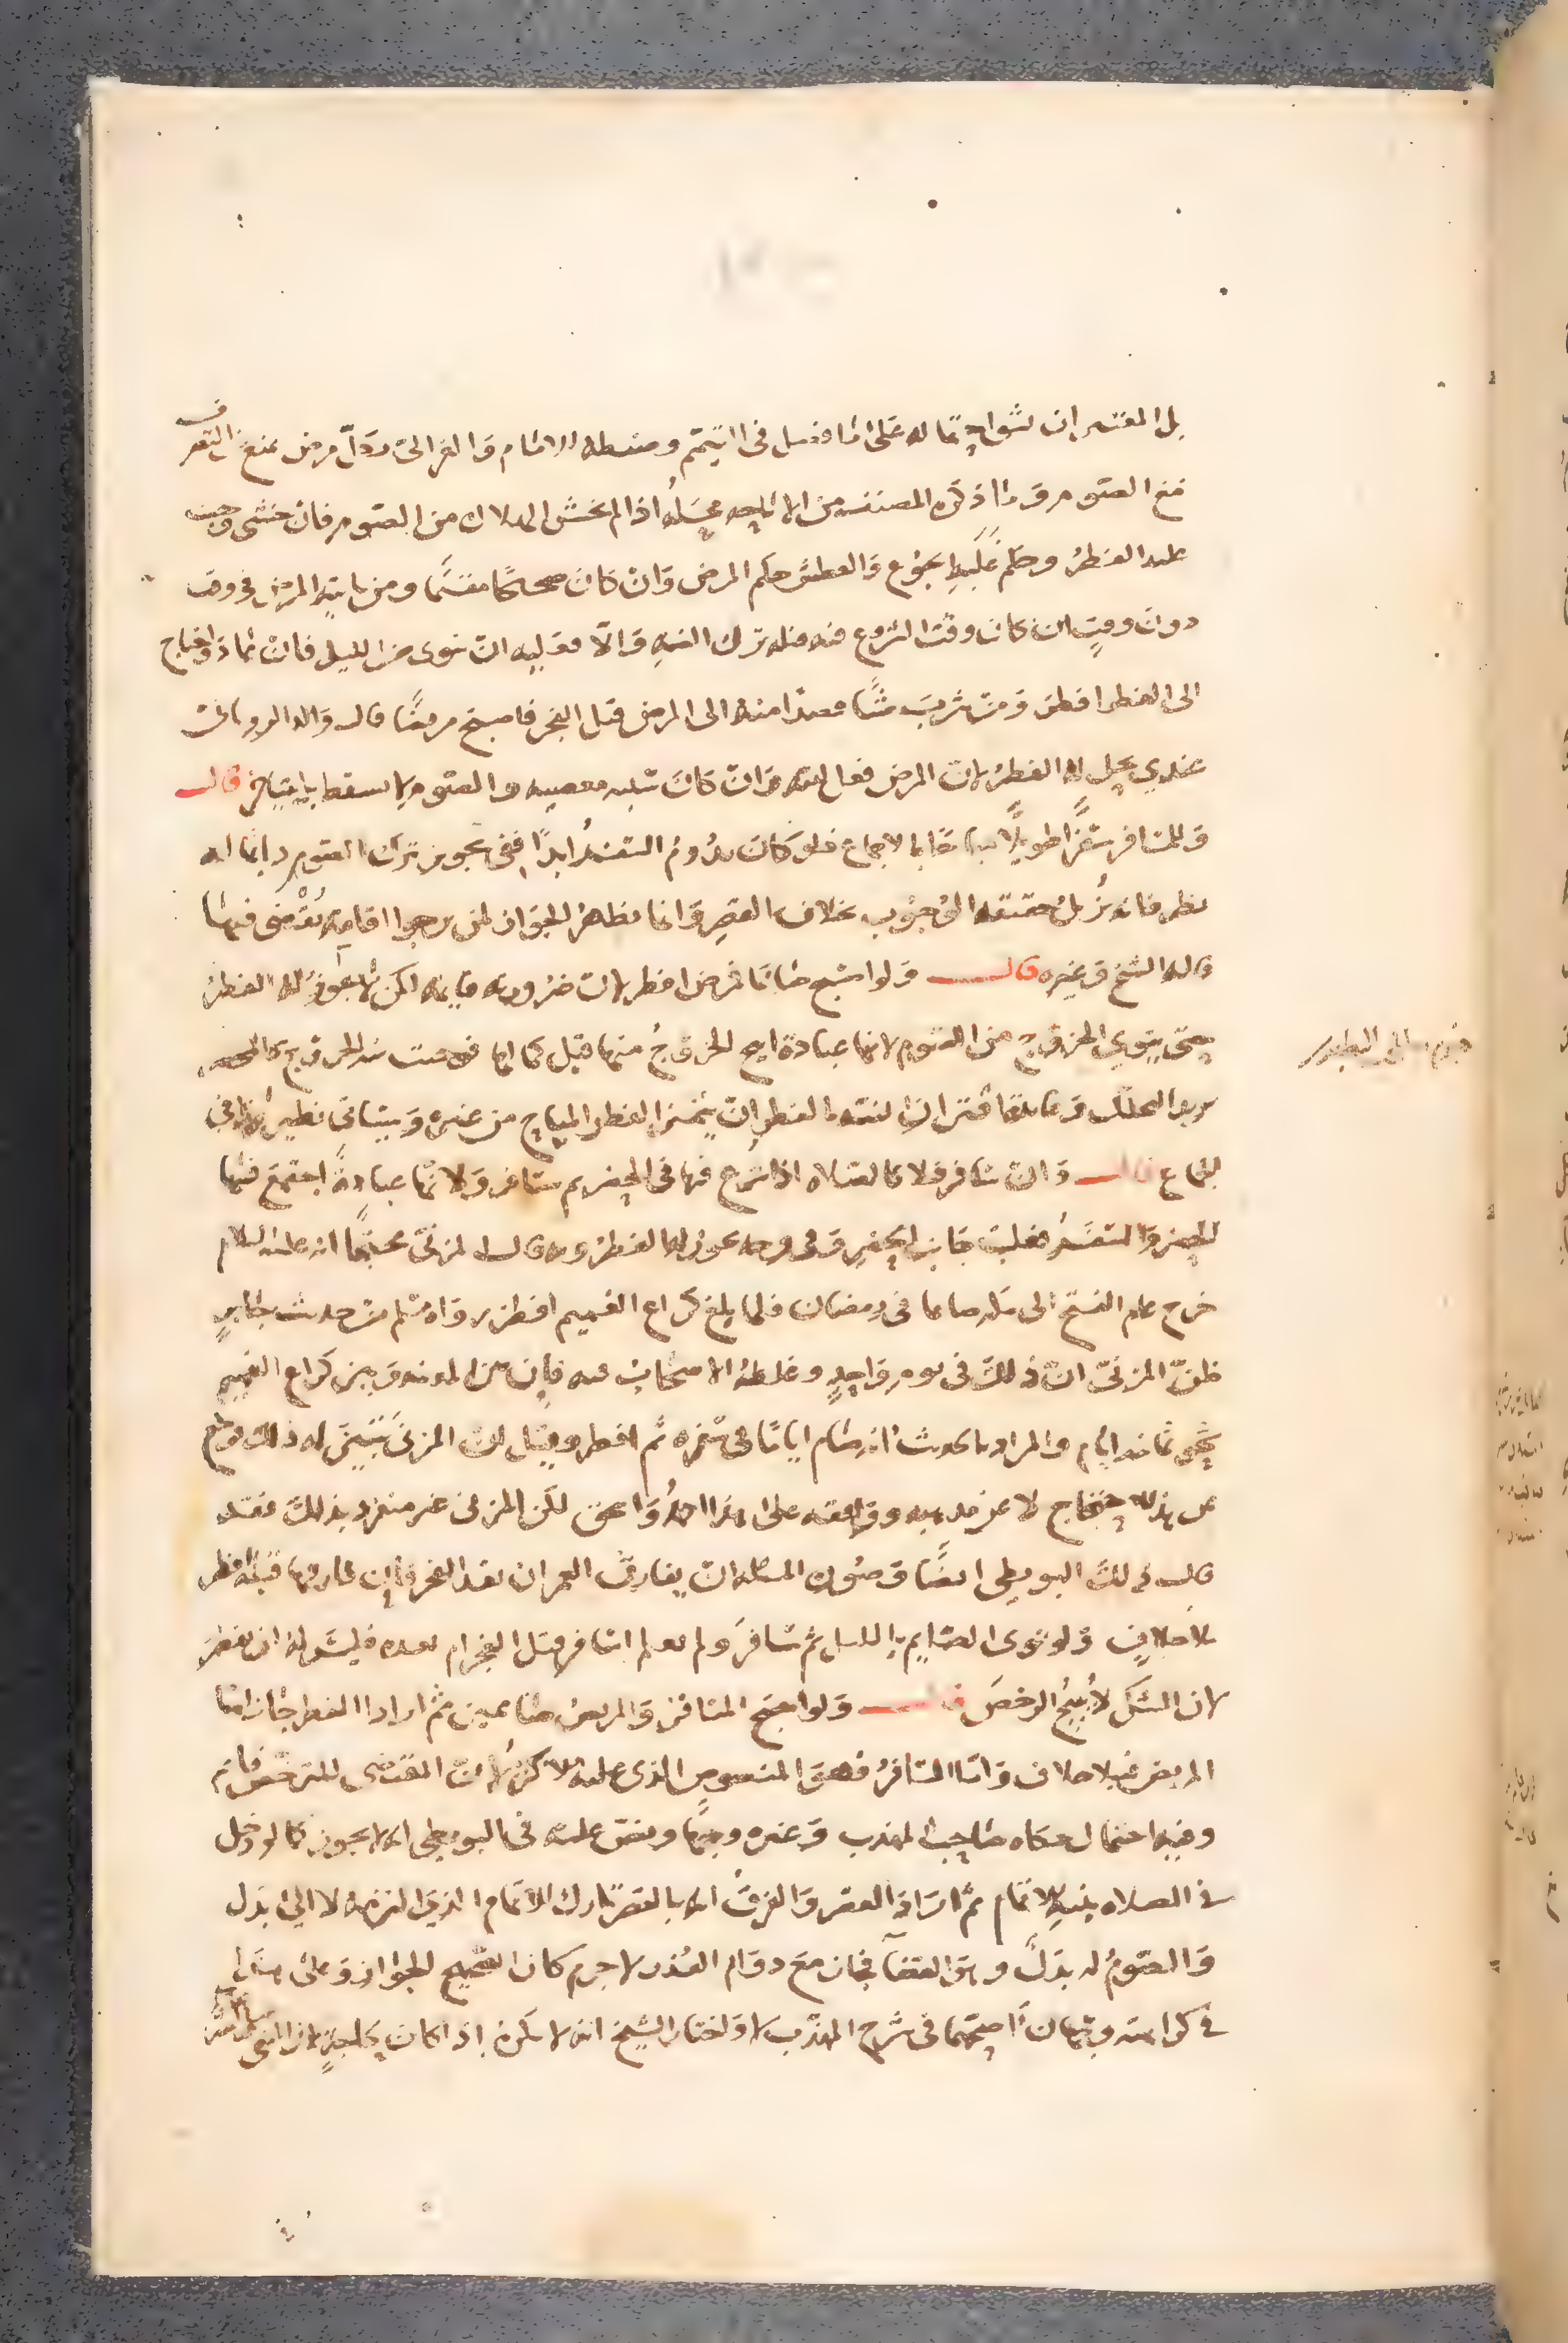 بل المعتبر ان يشق احتماله على ما فصل في التيمم وضبطه الامام والغزالي بكل مرض يمنع من التصرف
مع الصوم وما ذكره المصنف من الاباحة محله اذا لم يخش الهلاك من الصوم فان خشي وجب
عليه الفطر وحكم غلبة الجوع والعطش حكم المرض وان كان صحيحا مقيما ومن يأتيه المرض في وقت
دون وقت ان كان وقت الشروع فيه فله ترك النية والا فعليه ان ينوي من الليل فان عاد واحتاج
الى الفطر افطر ومن شرب شيئا قصدا منه الى المرض قبل الفجر فاصبح مريضا قال والد الروياني
عندي يحل له الفطر لان المرض فعل الله وان كان سببه معصية والصوم لا يسقط باختياره قال
وللمسافر سفرا طويلا مباحا بالاجماع فلو كان يدوم السفر ابدا ففي تجويز ترك الصوم دائما له
نظر فانه يزيل حقيقة الوجوب بخلاف القصر وانما يظهر الجواز لمن يرجوا اقامة يقضي فيها
قاله الشيخ وغيره قال ولو اصبح صائما فمرض افطر لان ضرورته قائمة لكن لا يجوز له الفطر
حتى ينوي الخروج من الصوم لانها عبادة ابيح الخروج منها قبل كمالها فوجبت نية الخروج كالمحصر
يريد التحلل وفائدة اقتران النية بالفطر ان يتميز الفطر المباح من غيره وسيأتي نظير هذا في
الجماع قال وان سافر فلا كالصلاة اذا شرع فيها في الحضر ثم سافر ولانها عبادة اجتمع فيها
الحضر والسفر فغلبت جانب الحضر وفي وجه يجوز له الفطر وبه قال المزني محتجا انه عليه السلام
خرج عام الفتح الى مكة صائما في رمضان فلما بلغ كراع الغميم افطر رواه مسلم من حديث جابر
فظن المزني ان ذلك في يوم واحد وغلطه الاصحاب فيه فان بين المدينة وبين كراع الغميم
نحو ثمانية ايام والمراد بالحديث انه صام اياما في سفره ثم افطر وقيل ان المزني تبين له ذلك فرجع
عن هذا الاحتجاج لا عن مذهبه ووافقه على هذا احمد واسحق لكن المزني غير منفرد بذلك فقد
قال ذلك البويطي ايضا وصورة المسئلة ان يفارق العمران بعد الفجر فان فارقها قبله افطر
بلا خلاف ولو نوى الصايم بالليل ثم سافر ولم يعلم اسافر قبل الفجر ام بعده فليس له ان يفطر
لان الشك لا يبيح الرخص قال ولو اصبح المسافر والمريض صائمين ثم ارادا الفطر جاز اما
المريض فبلا خلاف واما المسافر فهو المنصوص الذي عليه الاكثر لان المقتضي للترخص قائم
وفيه احتمال حكاه صاحب المهذب وغيره وجها ونص عليه في البويطي انه لا يجوز كما لو دخل
في الصلاة بنية الاتمام ثم اراد القصر والفرق انه بالقصر تارك الاتمام الذي التزمه لا الى بدل
والصوم له بدل وهو القضا فجاز مع دوام العذر لا جرم كان الصحيح الجواز وعلى هذا
في كراهته وجهان اصحهما في شرح المهذب لا واختار الشيخ انه لا يكره اذا كان لحاجة